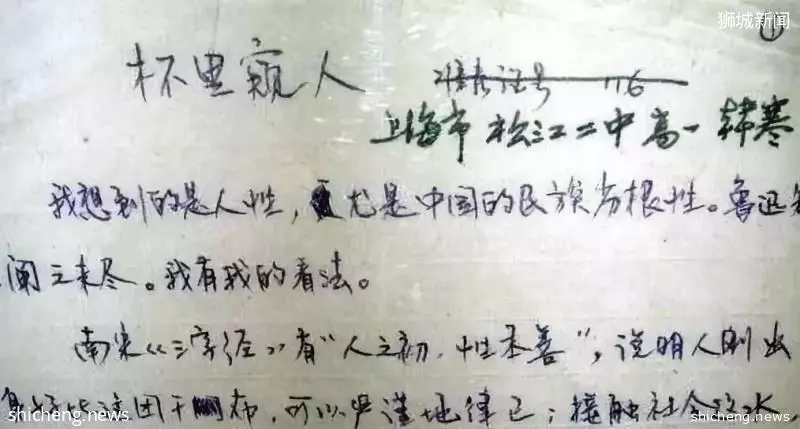 狮城新闻
①
杯里窥人
准考证号 116
上海市松江二中高一 韩寒
我想到的是人性，尤是中国的民族劣根性。鲁迅先
阐之未尽。我有我的看法。
南宋《三字经》有“人之初，性本善”，说明人刚出
这团干布，可以严谨地律己；接触社会这水，
shicheng.news
shicheng.news